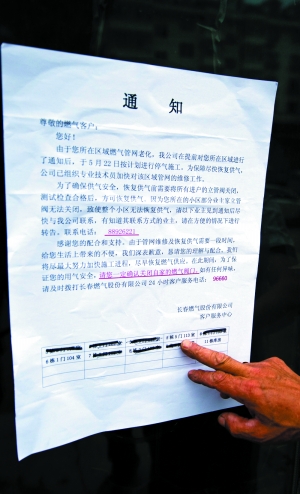 通 知
尊敬的燃气客户：
您好！
由于您所在区域燃气管网老化，我公司在提前对您所在区域进行
了通知后，于5月22日按计划进行停气施工。为保障尽快恢复供气，
公司已组织专业技术员加快对该区域管网的维修工作。
为了确保供气安全，恢复供气前需要将所有进户的立管阀关闭，
测试检查合格后，方可恢复供气。因为您所在的小区部分业主家立管
阀无法关闭，致使整个小区无法恢复供气，请以下业主见到通知后尽
快与我公司联系，有知道其联系方式的业主，请在方便的情况下进行
转告。联系电话：
感谢您的配合和支持，由于管网维修及恢复供气需要一段时间，
给您生活上带来的不便，我们深表歉意，恳请您的理解与配合。我们
将尽最大努力加快施工进程，尽早恢复燃气供应。在此期间，为了保
证您的用气安全，请您一定确认关闭自家的燃气阀门。如有任何异味，
请及时拨打长春燃气股份有限公司24小时客户服务电话：96660
长春燃气股份有限公司
客户服务中心
6栋1门104室